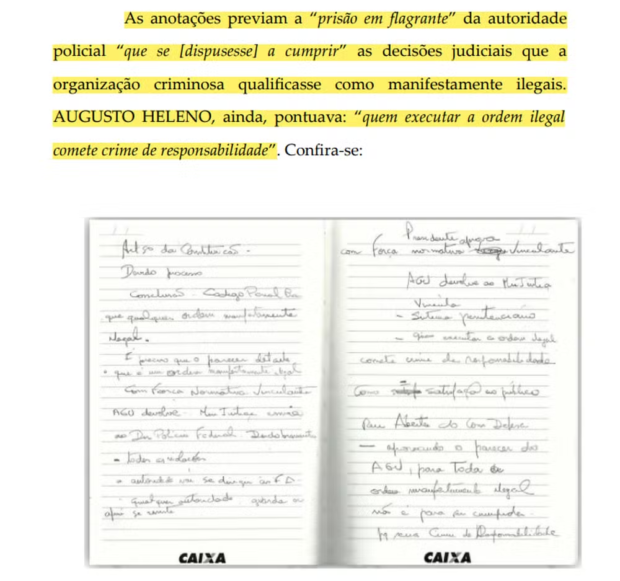 As anotações previam a “prisão em flagrante” da autoridade
policial “que se [dispusesse] a cumprir” as decisões judiciais que a
organização criminosa qualificasse como manifestamente ilegais.
AUGUSTO HELENO, ainda, pontuava: “quem executar a ordem ilegal
comete crime de responsabilidade”. Confira-se:
da Constituição.
Conclusão - Código Penal
que qualquer ordem manifestamente
ilegal.
É preciso que o parecer detalhe
que é um ordem manifestamente ilegal
Com Força Normativa Vinculante
AGU devolve Min Justiça
Polícia Federal
- autoridade se dirige
Qualquer autoridade
se
CAIXA
Presidente aprova
com Força normativa Vinculante
AGU devolve ao Min Justiça
Vincula
- Sistema penitenciário
- quem executar a ordem ilegal
comete crime de responsabilidade
Como satisfação ao público
- aprovando o parecer da
AGU, para Toda
ordem manifestamente ilegal
não é para ser cumprida.
Crime de Responsabilidade
CAIXA